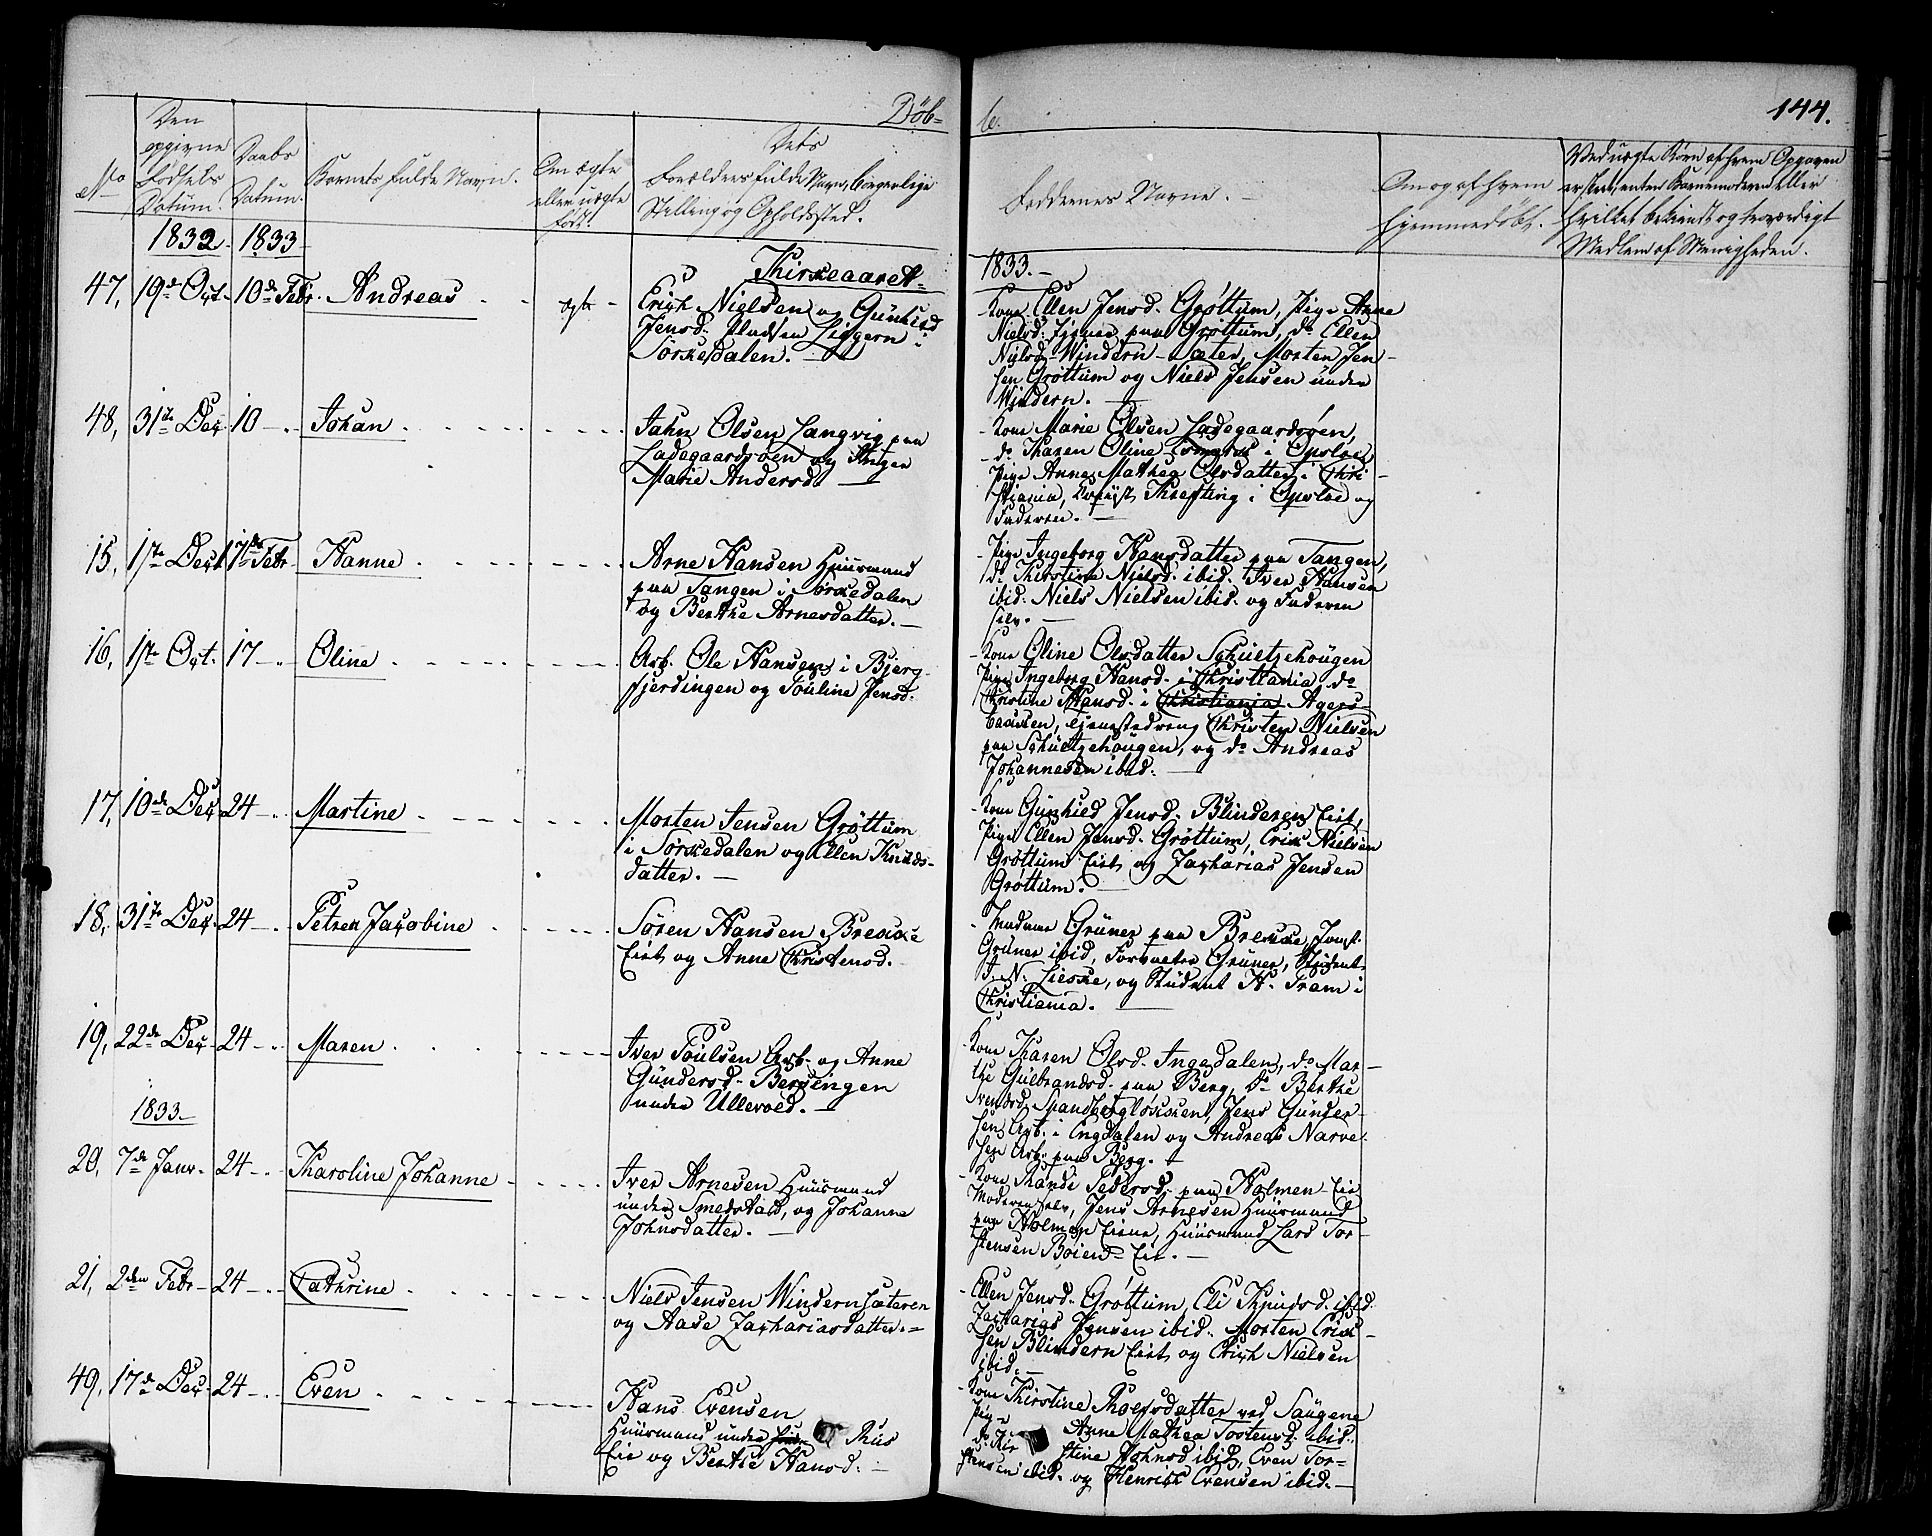 Döb-
b.
144.
No
Den opgivne Födsels Datum.
Daabs Datum.
Barnets fulde Navn.
Om ægte eller uægte født.
Dets Forældres fulde Navn, borgerlige Stilling og Opholdssted.
Faddernes Navne.
Om og af hvem hjemmedöbt.
Ved uægte Börn af hvem Opgaven er skeet, enten Barnemoderen eller hvilket bekiendt og troværdigt Medlem af Menigheden.
1832. 1833
Khirkeaaret
1833.
47, 19de Oct. 10de Febr. Andreas
ægte
Erich Nielsen og Gunhild
Jensd. Pladsen Liggern i
Sørkedalen.
Kone Ellen Jensd. Grøttum, Pige Anne
Nielsd. paa Grøttum, do Ellen
Nielsd. Windern-Sæter, Morten Jen-
sen Grøttum og Niels Jensen under
Windern.
48, 31te Dec. 10 Johan
Jahn Olsen Langvig paa
Ladegaardsøen og Inger
Marie Andersd.
Kone Marie Olsen Ladegaardsøen,
do Karen Oline i Opsloe,
Pige Anne Mathea Olsdatter i Chri-
stiania, Krefting i Opsloe og
Faderen.
15, 1ste Dec. 17de Febr. Hanne
Arne Hansen Huusmand
paa Tangen i Sørkedalen
og Berthe Arnesdatter.
Pige Ingeborg Hansdatter paa Tangen,
do Khirstine Nielsd. ibid. Iver Hansen
ibid. Niels Nielsen ibid. og Faderen
selv.
16, 1ste Oct. 17 Oline
Arb. Ole Hansen i Bjerg-
fjerdingen og Pouline Jensd.
Kone Oline Olsdatter Schultzehougen
Pige Ingeborg Hansd. i Christiania do
Christine Hansd. i Christiania Agers-
bakken, tjenestedreng Christen Nielsen
paa Schultzehougen, og do Andreas
Johannesen ibid.
17, 10de Dec. 24 Martine
Morten Jensen Grøttum
i Sørkedalen og Ellen Knuds-
datter.
Kone Gunhild Jensd. Blinderen Eiet,
Pige Ellen Jensd. Grøttum, Erik Nielsen
Grøttum Eiet og Zacharias Jensen
Grøttum.
18, 31te Dec. 24 Petrea Jacobine
Søren Hansen Brekke
Eiet og Anne Christensd.
Madame Grüner paa Brekke, Jomf.
Grüner ibid, Forvalter Grüner, Student
J. N. Lieske, og Student H. Fram i
Christiania.
19, 22de Dec. 24 Maren
Iver Poulsen Arb. og Anne
Gundersd. Bergingen
under Ullevold.
Kone Karen Olsd. Ingedalen, do Mar-
the Gulbrandsd. paa Berg, do Berthe
Svendsd. Jens Gunder-
sen Arb. i Engdalen og Andreas Narve-
sen Arb. paa Berg.
1833
20, 7de Janv. 24 Kharoline Johanne
Iver Arnesen Huusmand
under Smedstad, og Johanne
Johnsdatter.
Kone Randi Pedersd. paa Holmen-Eie
Moderen selv, Jens Arnesen Huusmand
paa Holmen Eierne, Huusmand Lars Tor-
stensen Bøien-Eie.
21, 2den Febr 24 Cathrine
Niels Jensen Windernsæteren
og Aase Zachariasdatter.
Ellen Jensd. Grøttum, Eli Knudsd. ibid.
Zacharias Jensen ibid. Morten Erik-
sen Blindern Eiet og Erich Nielsen
ibid.
49, 17de Dec. 24 Even
Hans Evensen
Huusmand under Thus
Eie og Berthe Hansd.
Kone Khirstine Thoersdatter ved Saugene
Pige Anne Mathea Torstensd. ibid.
do Kir stine Johnsd ibid, Even Tor-
stensen ibid. og Henrich Evensen ibid.